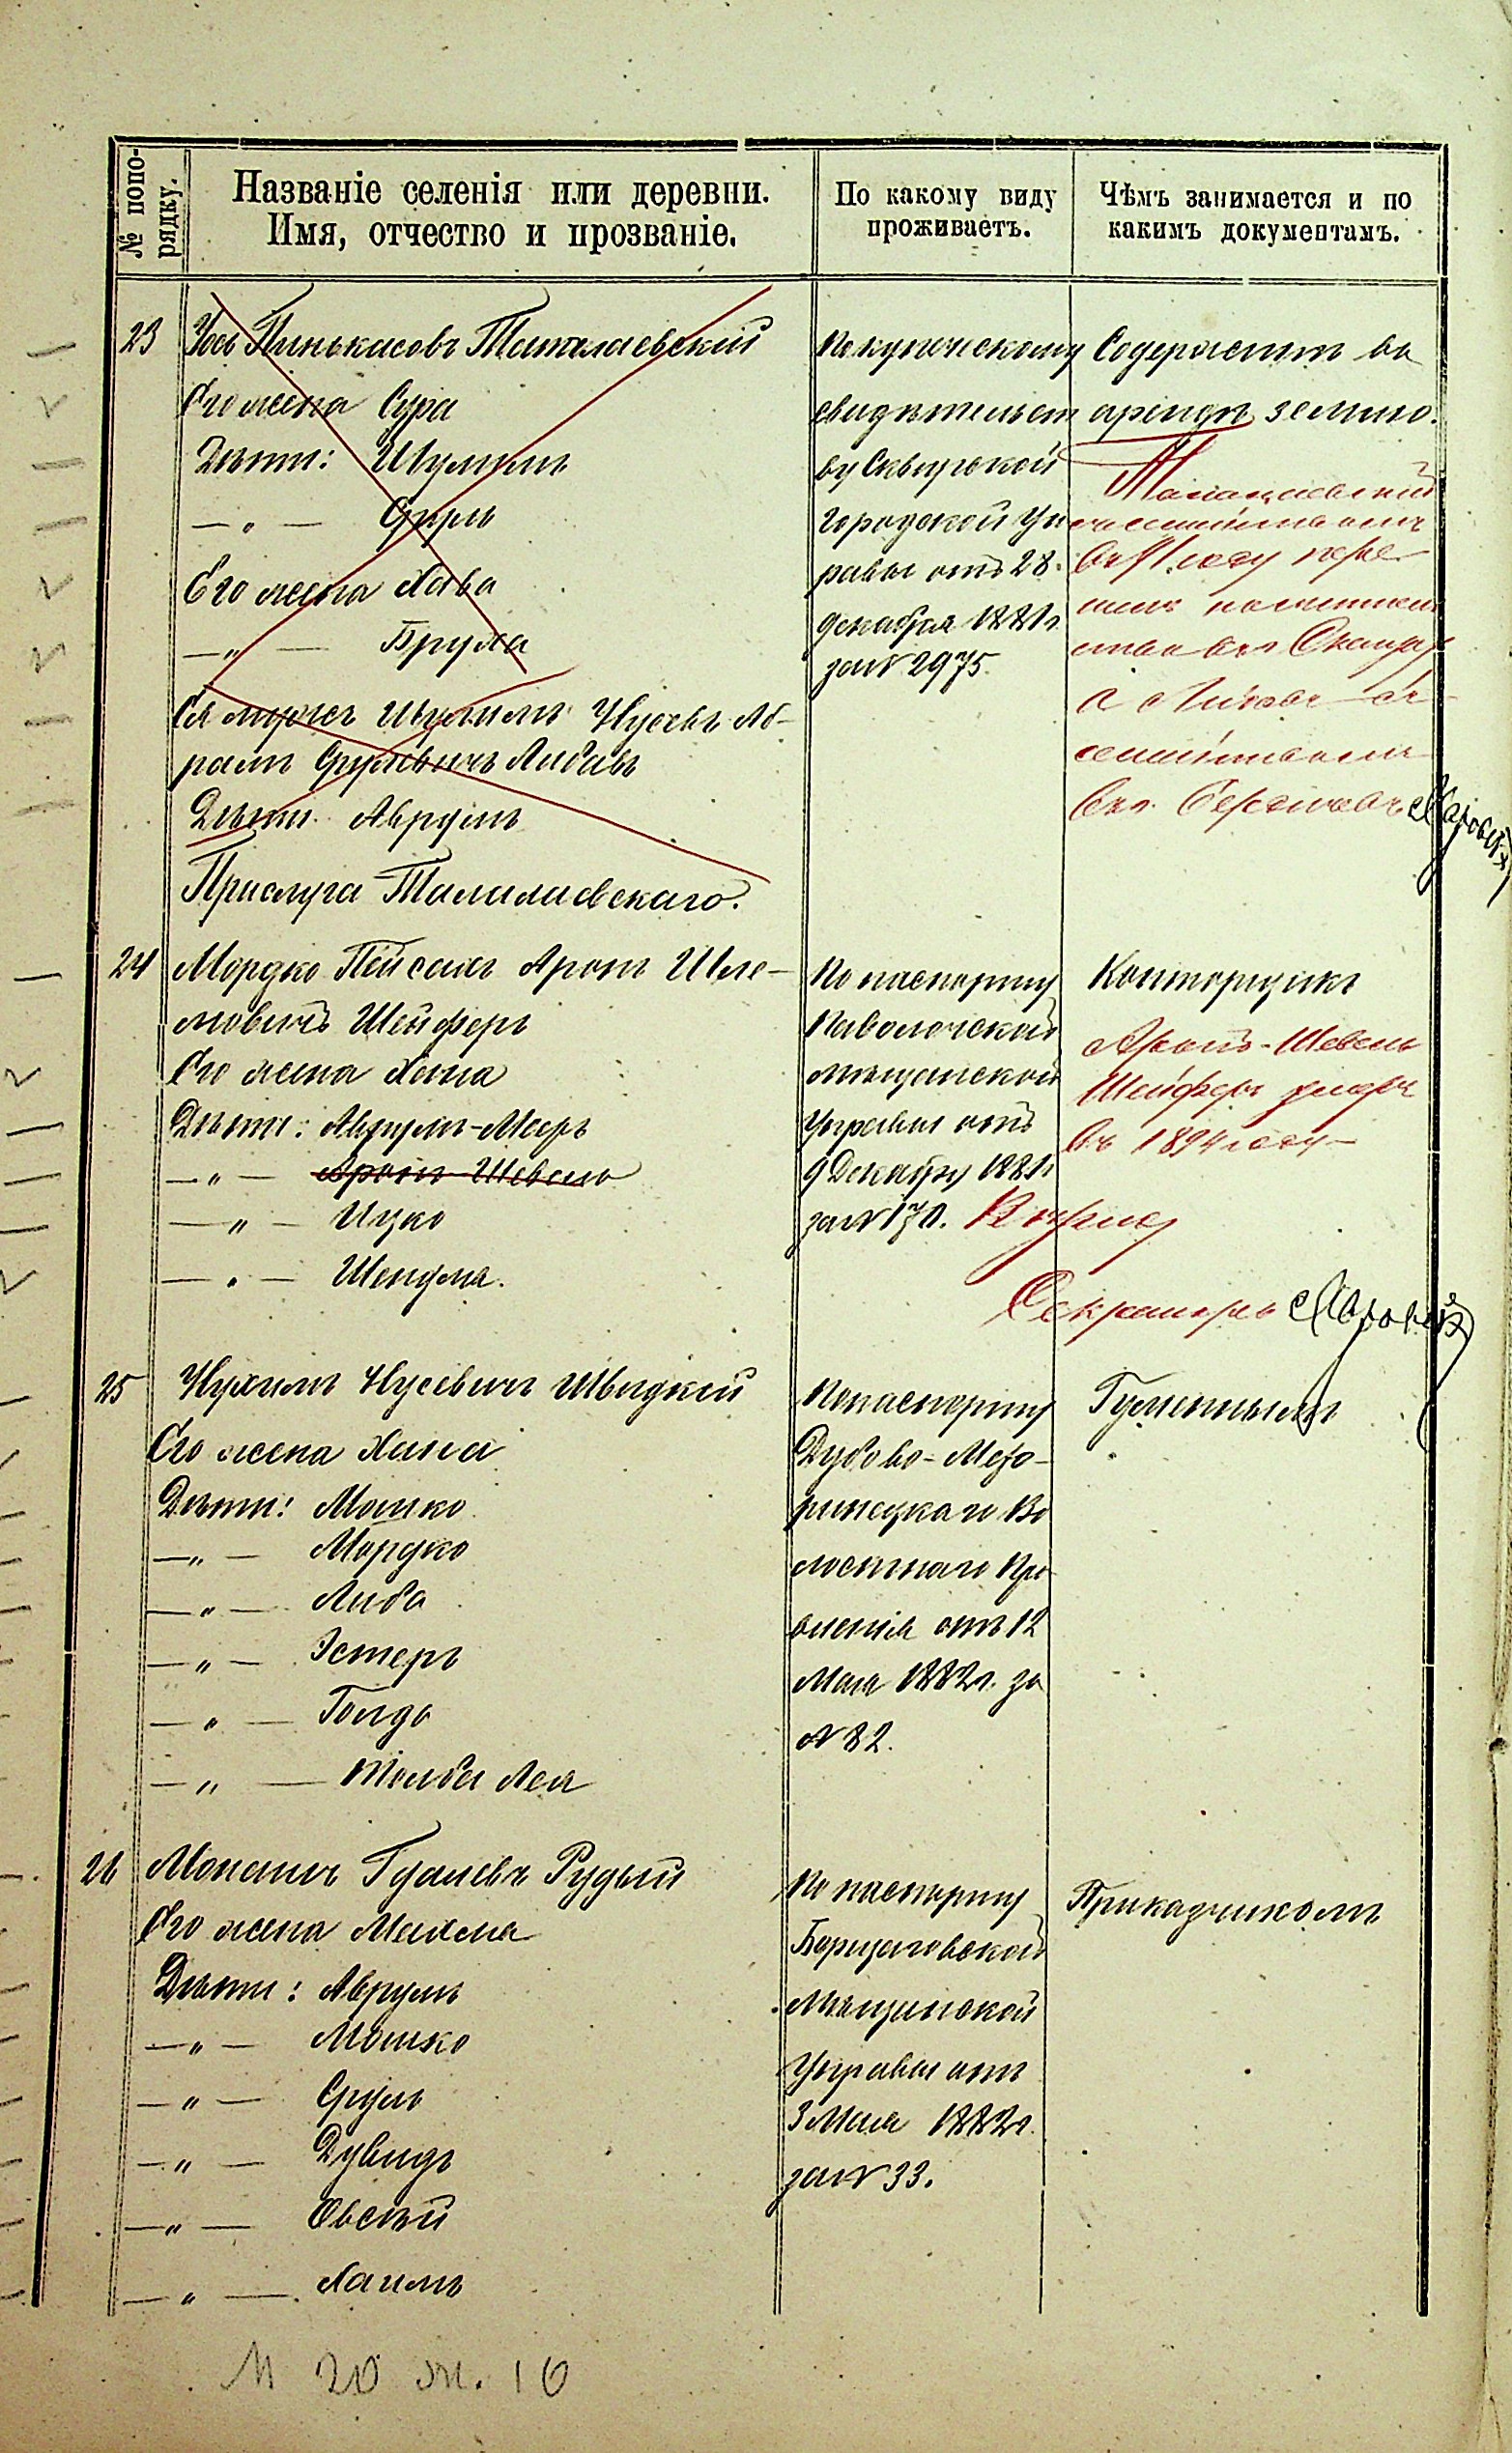 № попо-
рядку.
Названіе селенія или деревни.
Имя, отчество и прозваніе.
По какому виду
проживаетъ.
Чѣмъ занимается и по
какимъ документамъ.
23
Іось Пинькасовъ
Его жена Сура
Дѣти: Шулимъ
—„— Сруль
Его жена Хава
—„— Брума
Ея мужъ Нусевъ Аб-
рамъ Срулевичъ
Дѣти. Аврумъ
Прислуга Талалаевскаго.
По купическому
свидѣтельст
ву Сквирской
Городской Уп
равы отъ 28
декабря 1881г
за № 2975.
Содержитъ въ
арендѣ землю.
семействомъ
семействомъ
24
Мордко Пейсахъ Аронъ Шле-
мовичъ Шейферъ
Его жена Хана
Дѣти: Аврумъ-Мееръ
—„— Аронъ Шевель
—„— Ицко
—„— Шендля.
По паспорту
Паволочской
мѣщанской
Управы отъ
9 Декабря 1881г
за № 170.
Конторщикъ
Аронъ-Шевель
Шейферъ умеръ
въ 1894 году
Секретарь
25
Нухимъ Нусевичъ Швидкій
Его жена Хана
Дѣти: Мошко
—„— Мордко
—„— Либа
—„— Эстеръ
—„— Голда
—„— Лея
По паспорту
Дубово-Меха-
ринецкаго Во
лостнаго Пра
вленія отъ 12
Мая 1882г. за
№ 82.
Гуменнымъ
26
Монашъ Гдалевъ Рудый
Его жена Мехля
Дѣти: Аврумъ
—„— Мошко
—„— Сруль
—„— Дувидъ
—„— Овсѣй
—„— Хаимъ
По паспорту
Борщаговской
Мѣщанской
Управы отъ
3 Мая 1882г.
за № 33.
Приказчикомъ
М 20 ж. 16